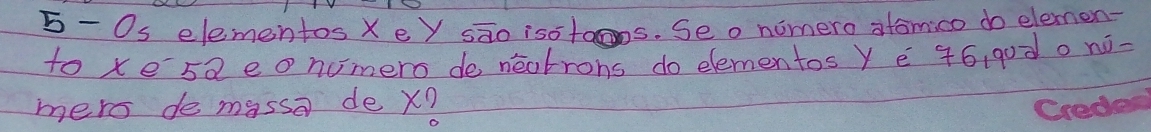 5 - Os elementos X e Y são isótonos. Se o número atômico do elemen-
to X e 52 e o número de nêutrons do elementos Y é 76, qual o nú-
mero de massa de X?